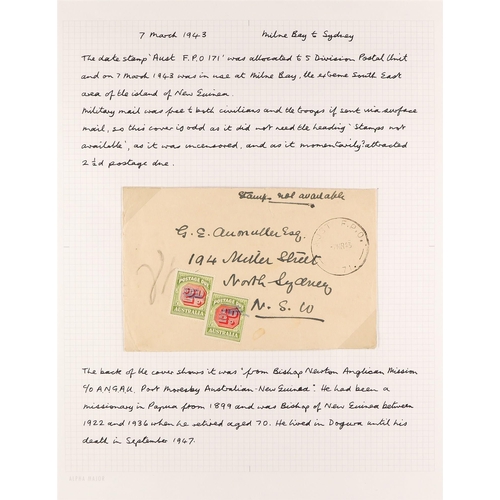 7 March 1943 Milne Bay to Sydney
The date stamp 'Aust F.P.O 171' was allocated to 5 Division Postal Unit
and on 7 March 1943 was in use at Milne Bay, the extreme South East
area of the island of New Guinea.
Military mail was free to both civilians and the troops if sent via surface
mail, so this cover is odd as it did not need the heading 'Stamps not
available', as it was uncensored, and as it momentarily? attracted
2½d postage due.
Stamps not available
G. E. Esq.
194 Miller Street
North Sydney
N.S.W
F.P.O.
171
POSTAGE DUE
AUSTRALIA
POSTAGE DUE
AUSTRALIA
The back of the cover shows it was "from Bishop Newton Anglican Mission
c/o A.N.G.A.U. Port Moresby Australian-New Guinea". He had been a
missionary in Papua from 1899 and was Bishop of New Guinea between
1922 and 1936 when he retired aged 70. He lived in Dogura until his
death in September 1947.